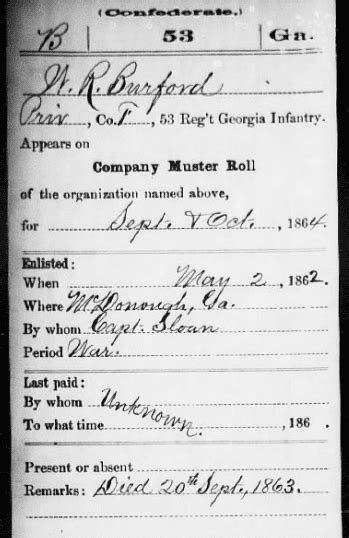 (Confederate.)
B | 53 | Ga.
W. R. Burford
Priv, Co. F, 53 Reg't Georgia Infantry.
Appears on
Company Muster Roll
of the organization named above,
for Sept. & Oct., 1864.
Enlisted:
When May 2, 1862.
Where McDonough, Ga.
By whom Capt. Sloan
Period War.
Last paid:
By whom Unknown.
To what time, 186 .
Present or absent
Remarks: Died 20th Sept., 1863.